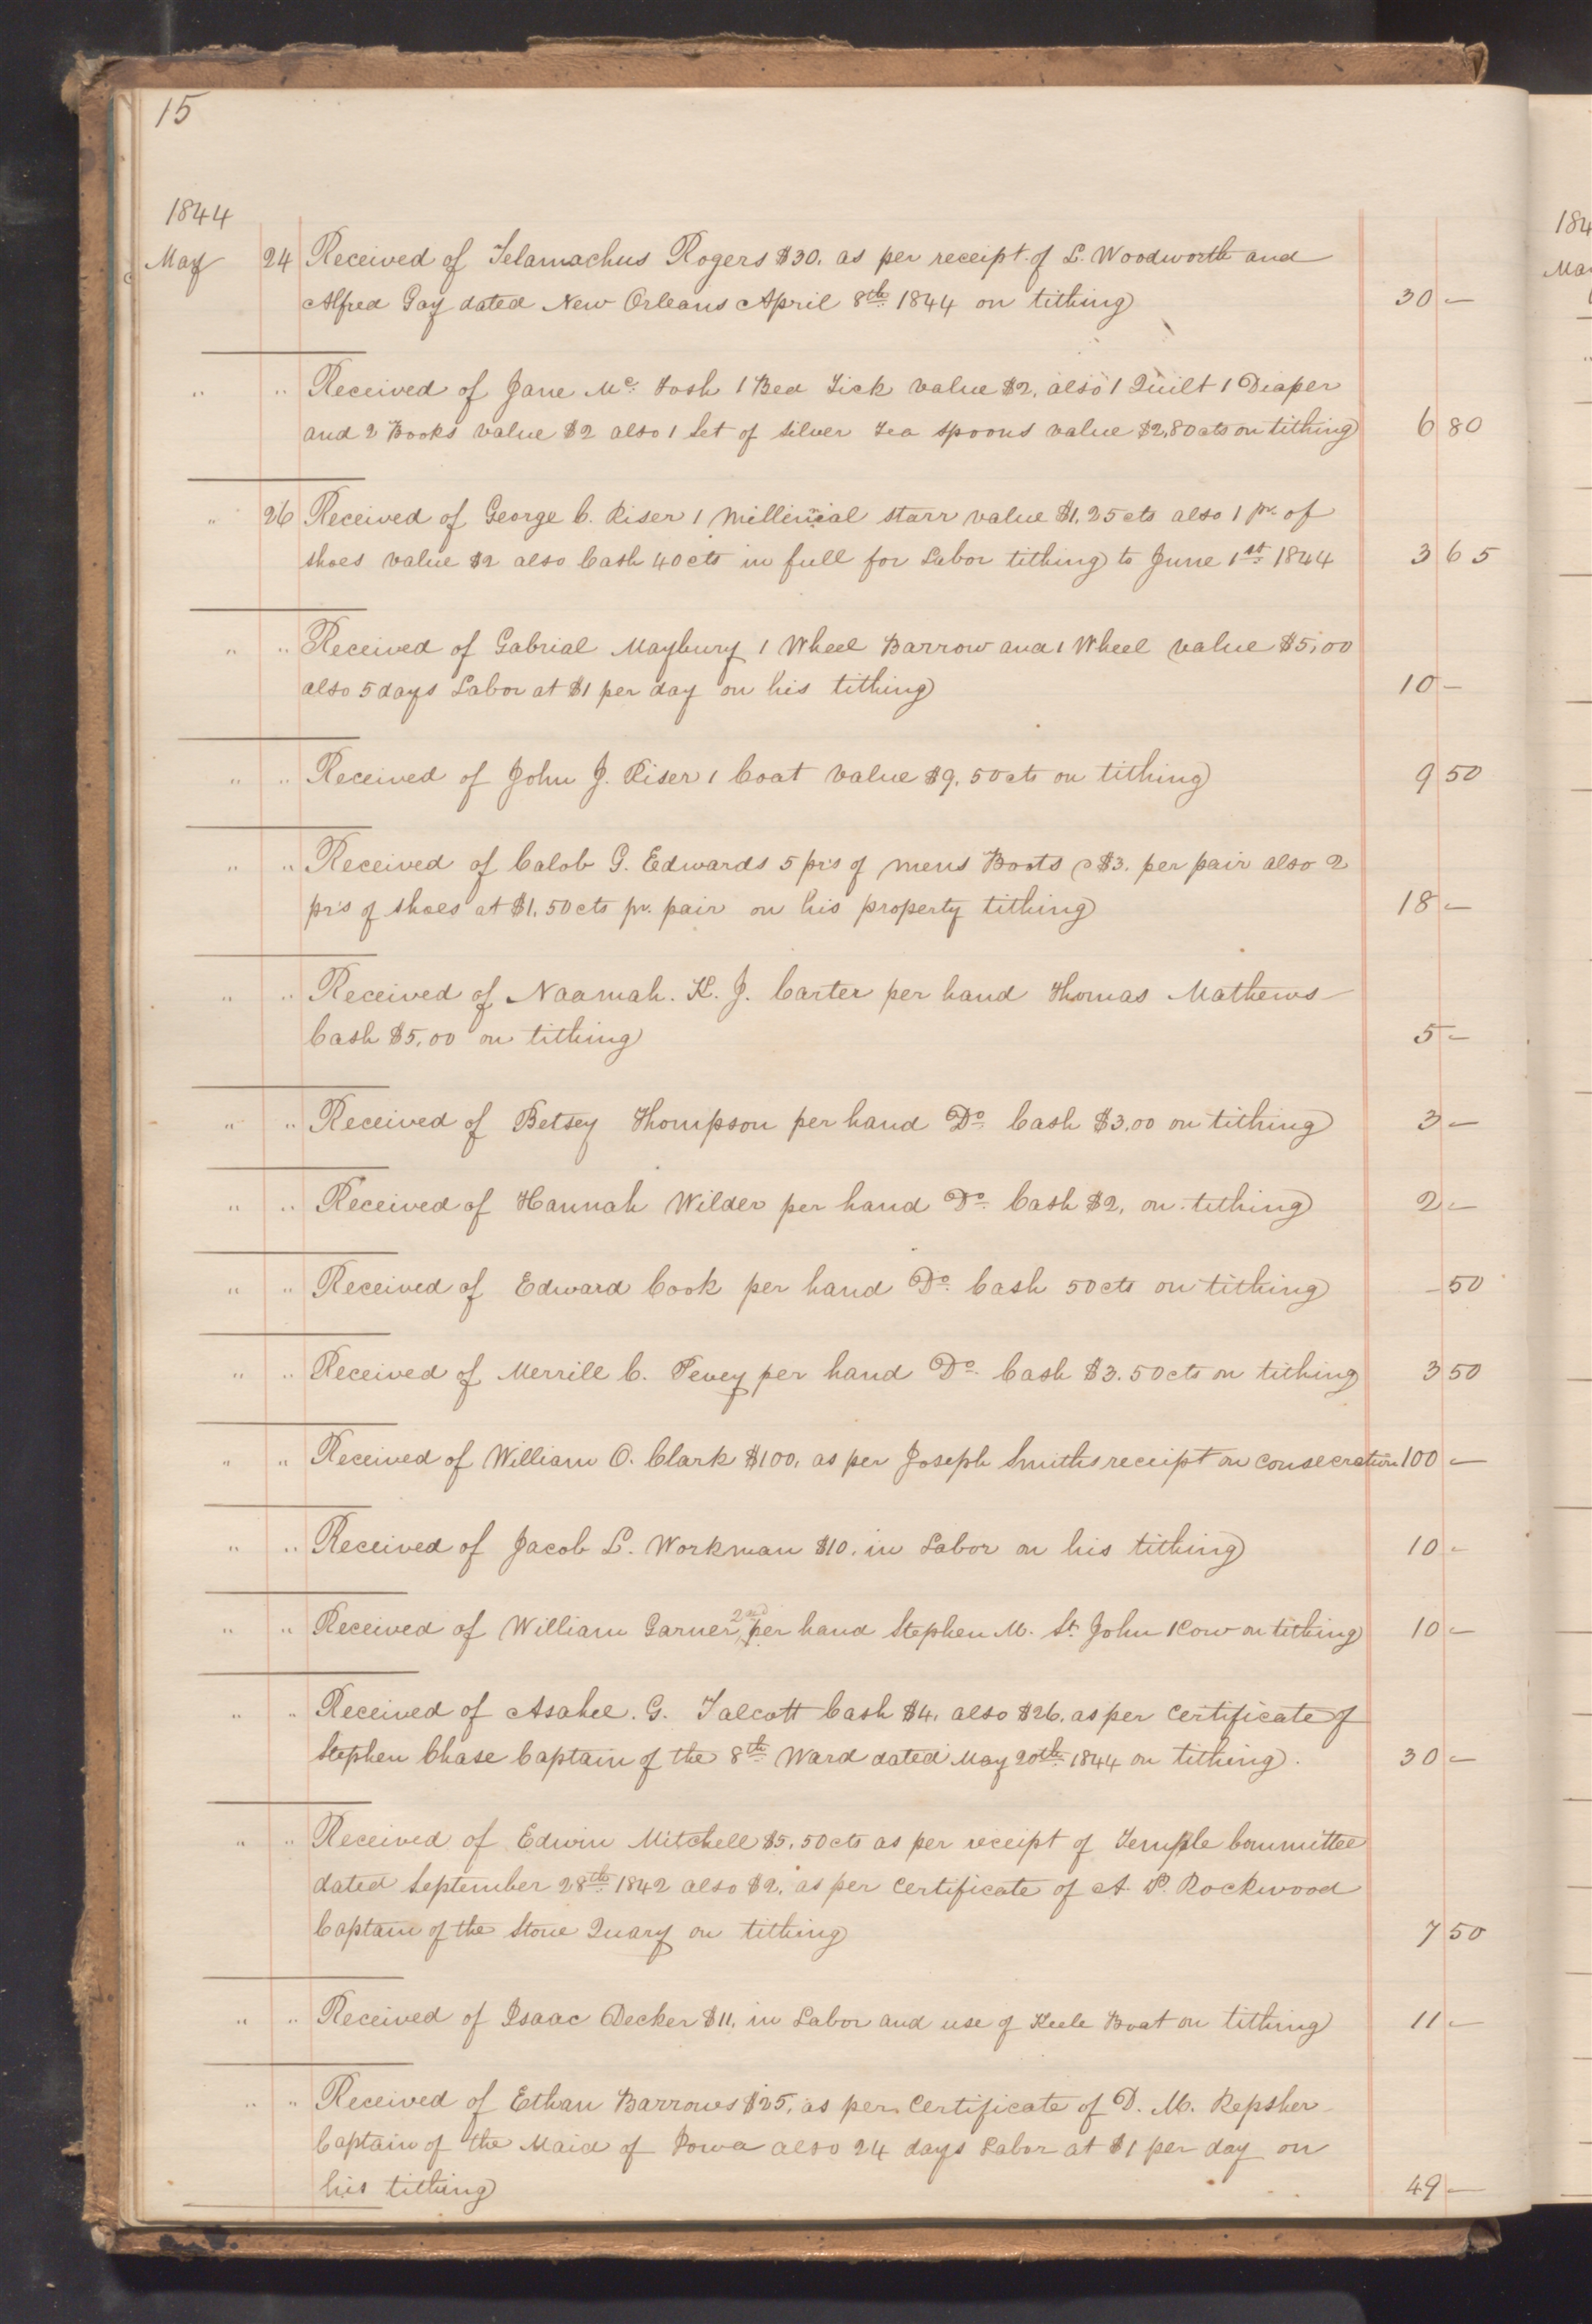 15
1844
May 24 Received of Telamachus Rogers $30. as per receipt of L. Woodworth and
Alfred Gay dated New Orleans April 8th 1844 on tithing 30 —
" " Received of Jane Mc. Tosh 1 Bed Tick value $2, also 1 Quilt 1 Diaper
and 2 Books value $2 also 1 Set of silver Tea spoons value $2,80cts on tithing 6 80
" 26 Received of George C. Riser 1 Millinial starr value $1,25cts also 1 pr. of
shoes value $2 also Cash 40cts in full for Labor tithing to June 1st 1844 3 65
" " Received of Gabrial Maybury 1 Wheel Barrow and 1 Wheel value $5,00
also 5 days Labor at $1 per day on his tithing 10 —
" " Received of John J. Riser 1 Coat value $9,50cts on tithing 9 50
" " Received of Calob G. Edwards 5 prs of mens Boots @ $3. per pair also 2
prs of shoes at $1,50cts pr. pair on his property tithing 18 —
" " Received of Naamah. K. J. Carter per hand Thomas Mathews
Cash $5,00 on tithing 5 —
" " Received of Betsey Thompson per hand Do. Cash $3,00 on tithing 3 —
" " Received of Hannah Wilder per hand Do. Cash $2, on tithing 2 —
" " Received of Edward Cook per hand Do. Cash 50cts on tithing — 50
" " Received of Merrill C. Pevey per hand Do. Cash $3.50cts on tithing 3 50
" " Received of William O. Clark $100, as per Joseph Smiths receipt on consecration 100 —
" " Received of Jacob L. Workman $10. in Labor on his tithing 10 —
" " Received of William Garner 2nd per hand Stephen M. St. John 1 Cow on tithing 10 —
" " Received of Asahel. G. Talcott Cash $4, also $26, as per Certificate of
Stephen Chase Captain of the 8th Ward dated May 20th 1844 on tithing. 30 —
" " Received of Edwin Mitchell $5,50cts as per receipt of Temple Committee
dated September 28th 1842 also $2, as per Certificate of A. P. Rockwood
Captain of the Stone Quary on tithing 7 50
" " Received of Isaac Decker $11, in Labor and use of Keele Boat on tithing 11 —
" " Received of Ethan Barrows $25, as per Certificate of D. M. Repsher
Captain of the Maid of Iowa also 24 days Labor at $1 per day on
his tithing 49 —
184
Ma